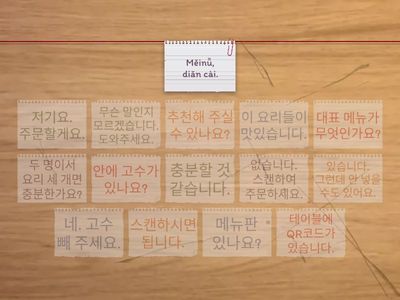 Měinǚ,
diǎn cài.
저기요.
주문할게요.
무슨 말인지
모르겠습니다.
도와주세요.
추천해 주실
수 있나요?
이 요리들이
맛있습니다.
대표 메뉴가
무엇인가요?
두 명이서
요리 세 개면
충분한가요?
안에 고수가
있나요?
충분할 것
같습니다.
없습니다.
스캔하여
주문하세요.
있습니다.
그런데 안 넣을
수도 있어요.
네. 고수
빼 주세요.
스캔하시면
됩니다.
메뉴판
있나요?
테이블에
QR코드가
있습니다.